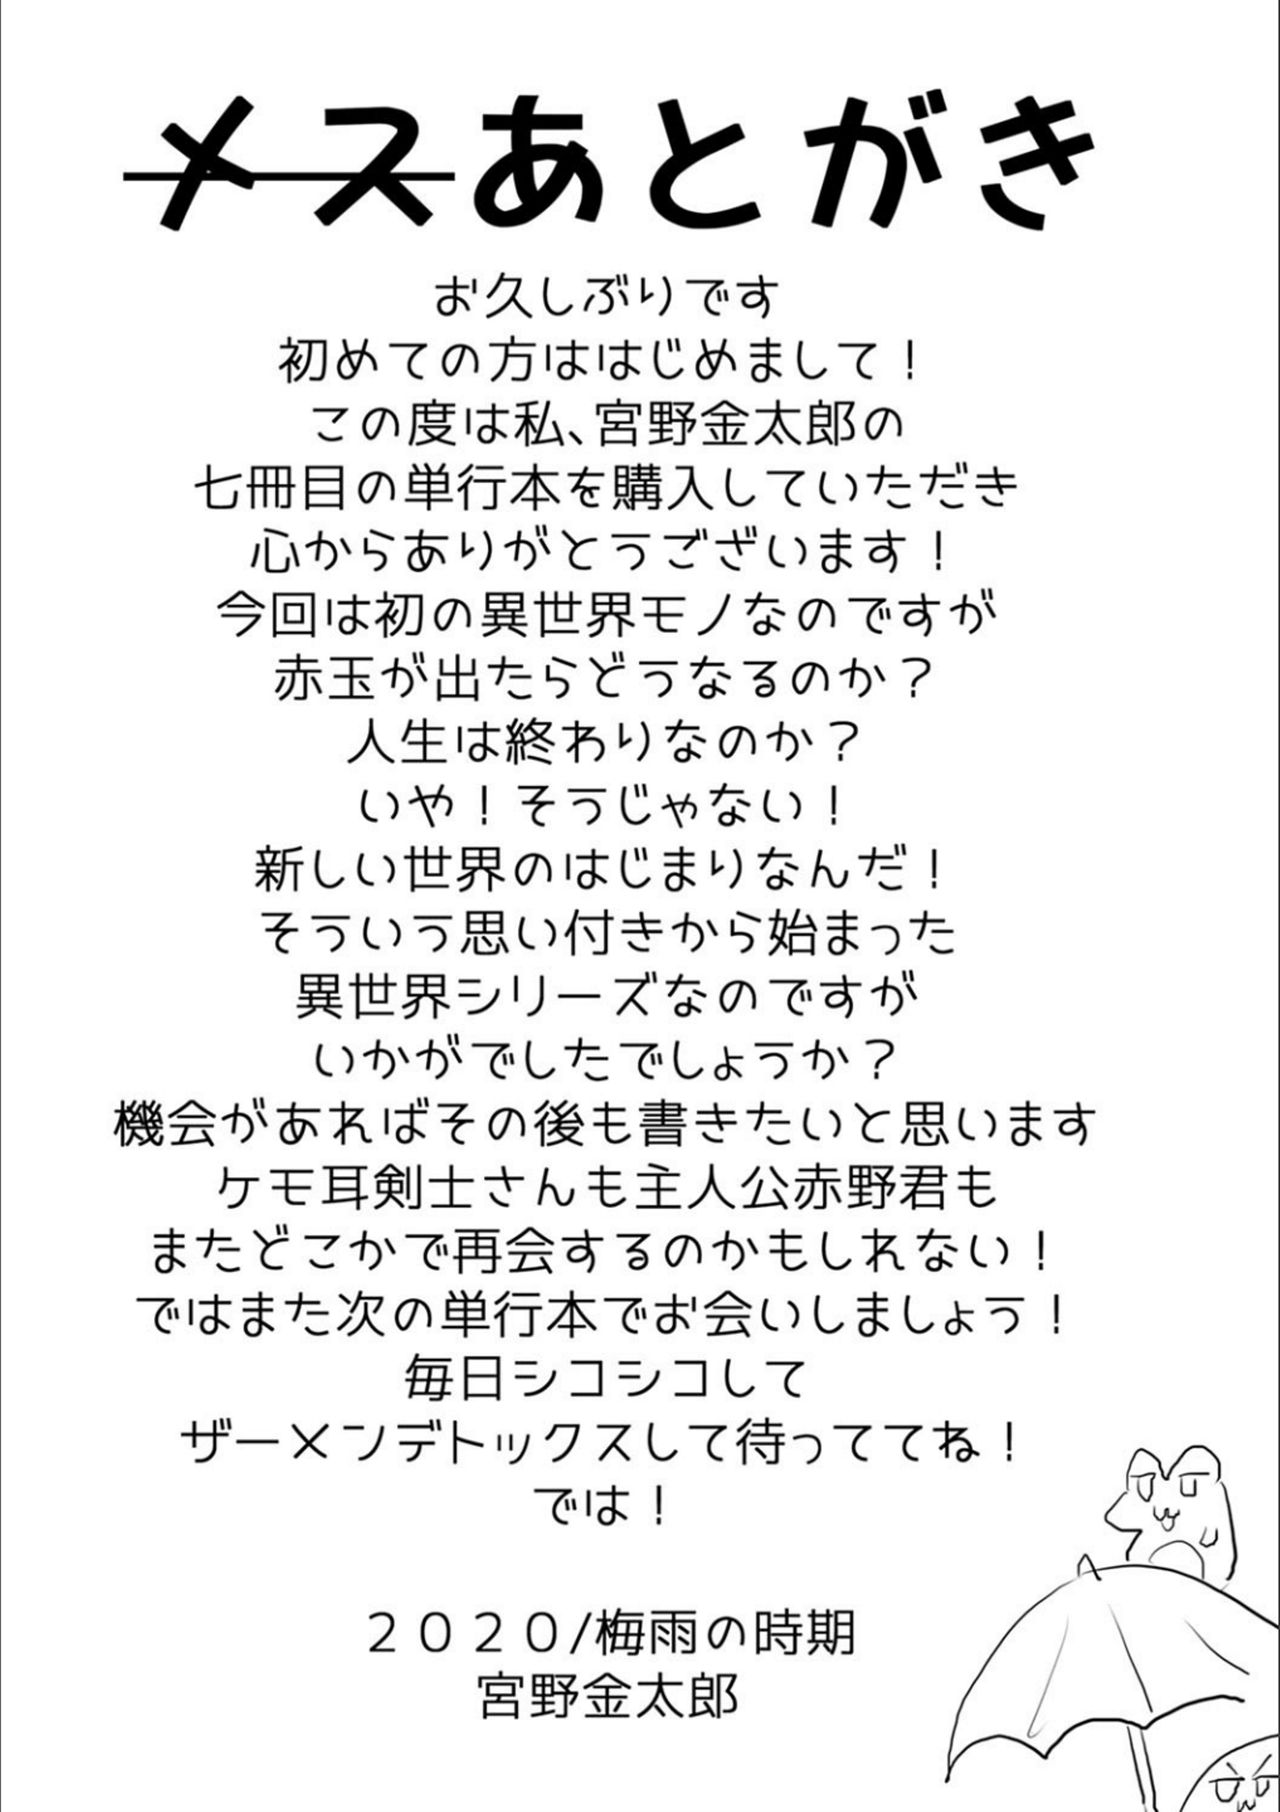 メスあとがき
お久しぶりです
初めての方ははじめまして！
この度は私、宮野金太郎の
七冊目の単行本を購入していただき
心からありがとうございます！
今回は初の異世界モノなのですが
赤玉が出たらどうなるのか？
人生は終わりなのか？
いや！そうじゃない！
新しい世界のはじまりなんだ！
そういう思い付きから始まった
異世界シリーズなのですが
いかがでしたでしょうか？
機会があればその後も書きたいと思います
ケモ耳剣士さんも主人公赤野君も
またどこかで再会するのかもしれない！
ではまた次の単行本でお会いしましょう！
毎日シコシコして
ザーメンデトックスして待っててね！
では！
２０２０/梅雨の時期
宮野金太郎